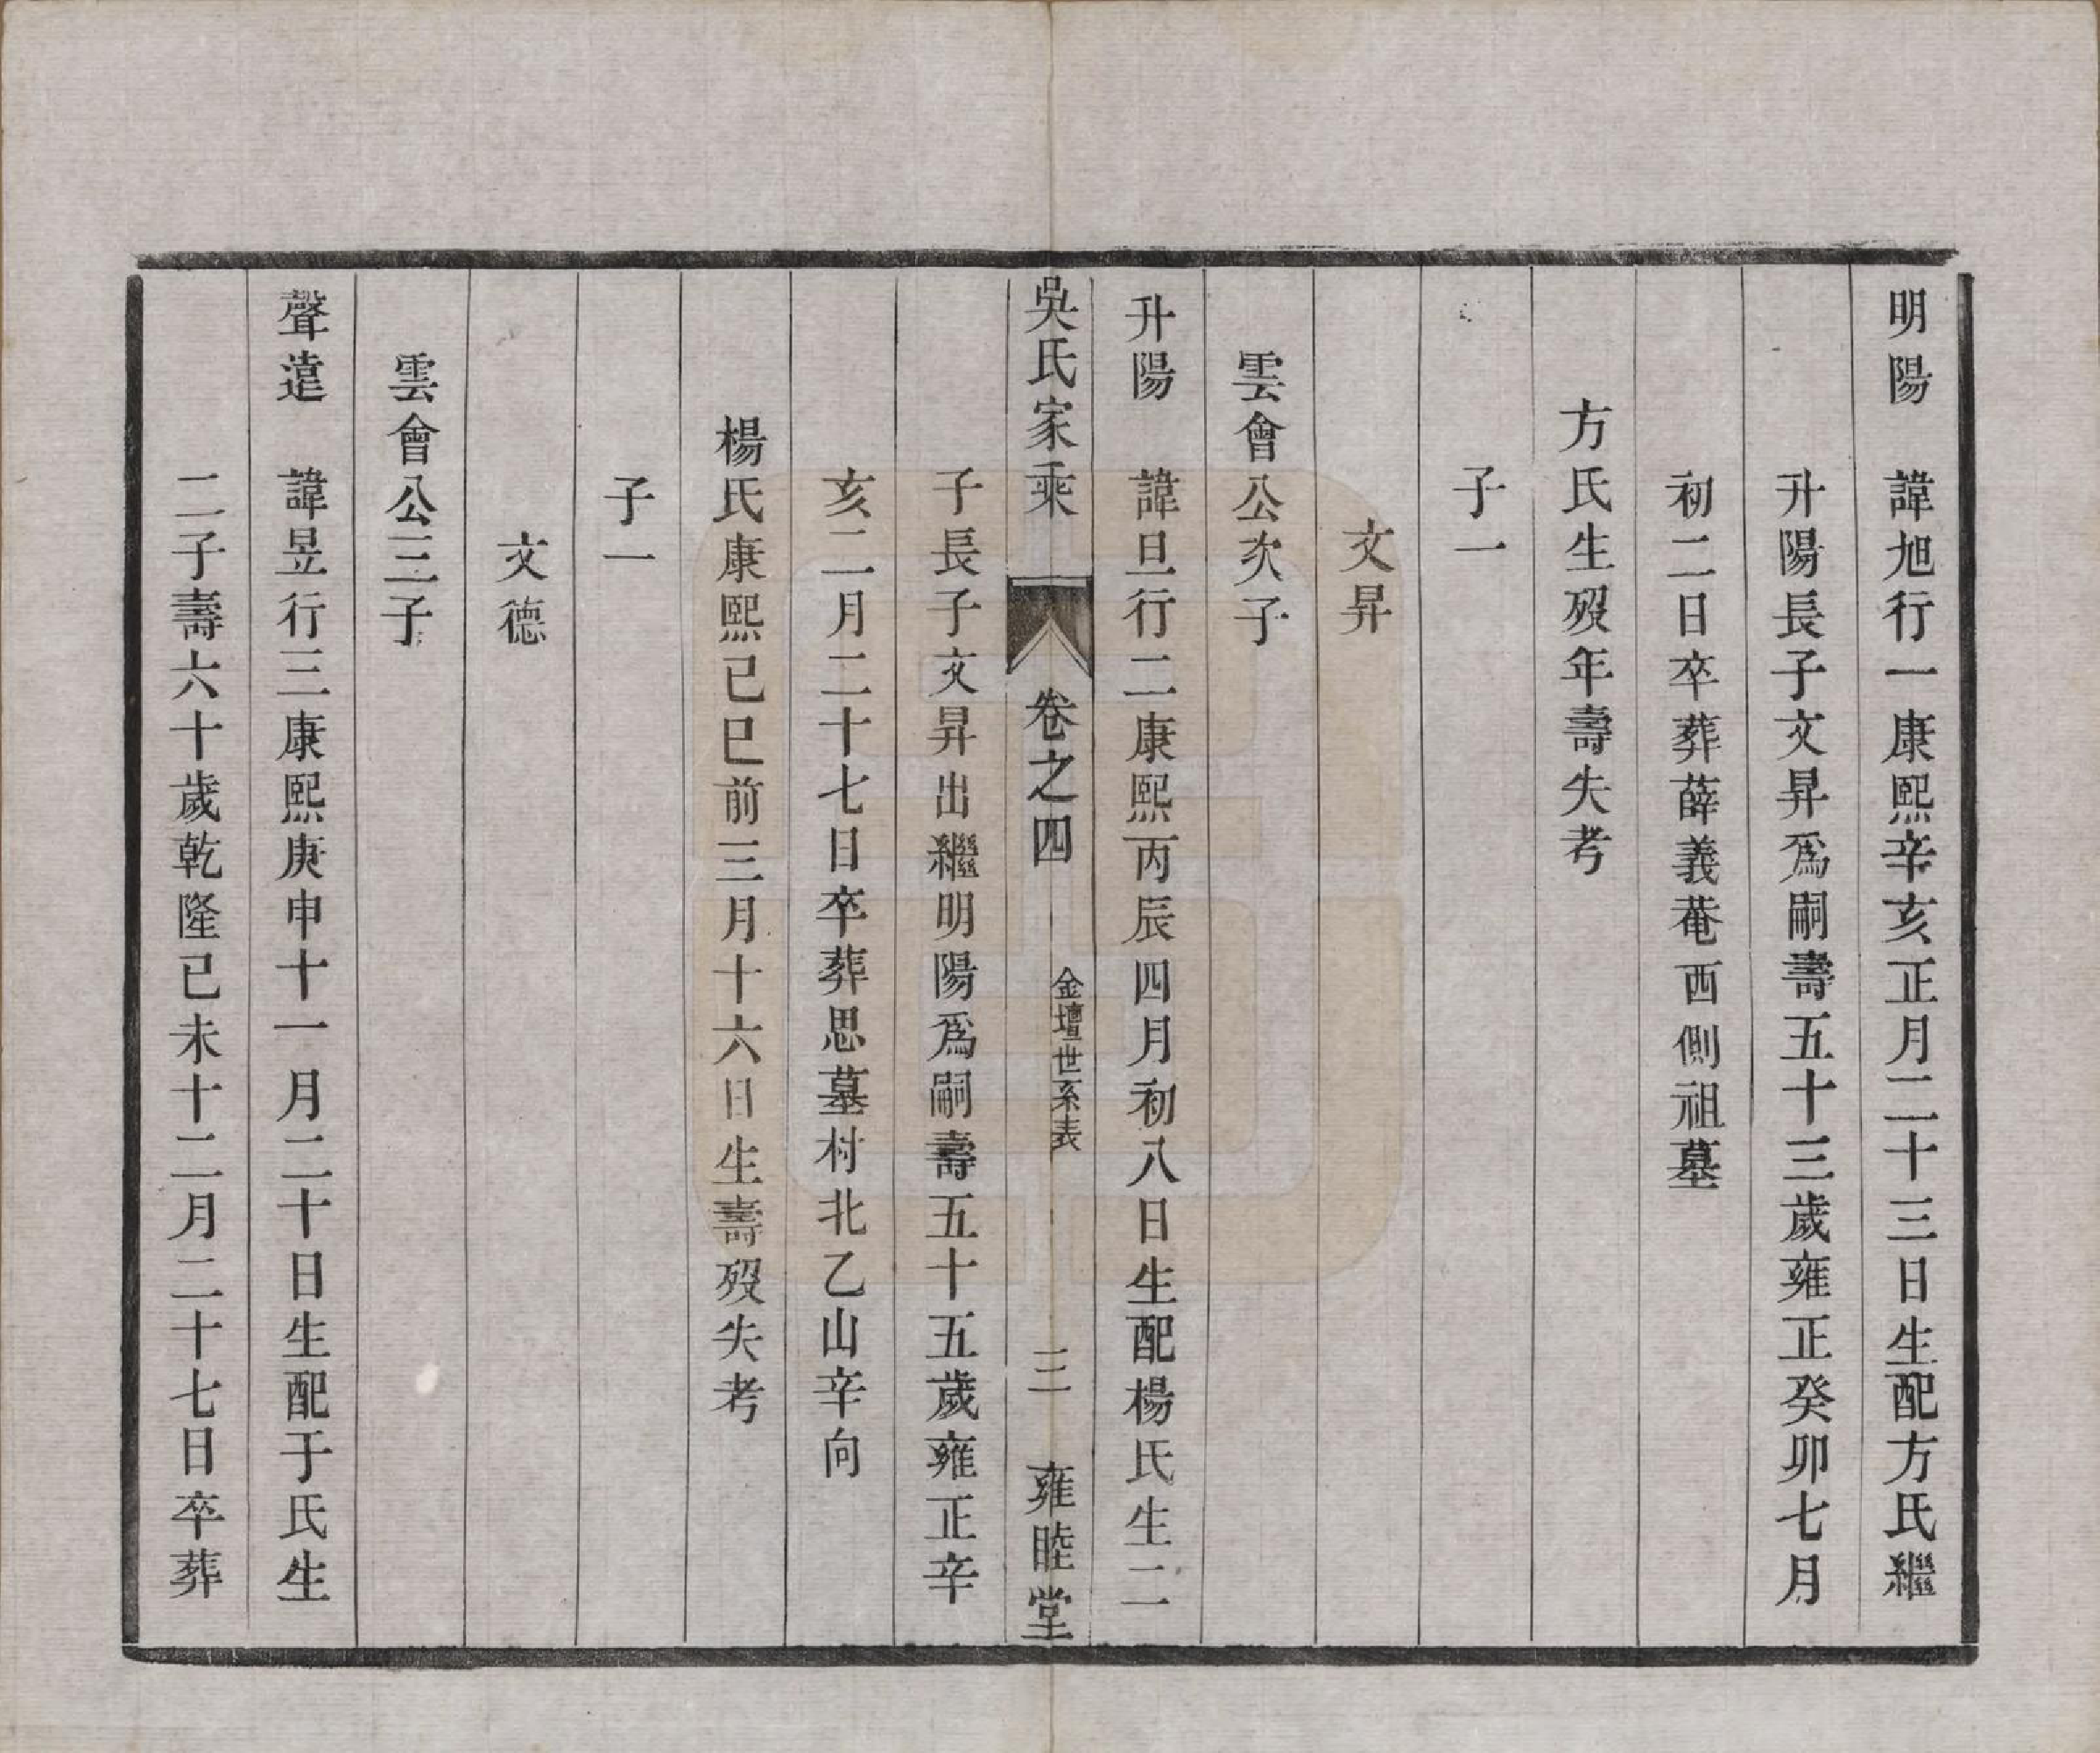 明陽　諱旭行一康熙辛亥正月二十三日生配方氏繼
升陽長子文昇爲嗣壽五十三歲雍正癸卯七月
初二日卒葬薛義菴西側祖墓
方氏生歿年壽失考
子一
文昇
雲會公次子
升陽　諱旦行二康熙丙辰四月初八日生配楊氏生二
吳氏家乘　卷之四　金壇世系表　三　雍睦堂
子長子文昇出繼明陽爲嗣壽五十五歲雍正辛
亥二月二十七日卒葬思墓村北乙山辛向
楊氏康熙己巳前三月十六日生壽歿失考
子一
文德
雲會公三子
聲遠　諱昱行三康熙庚申十一月二十日生配于氏生
二子壽六十歲乾隆己未十二月二十七日卒葬